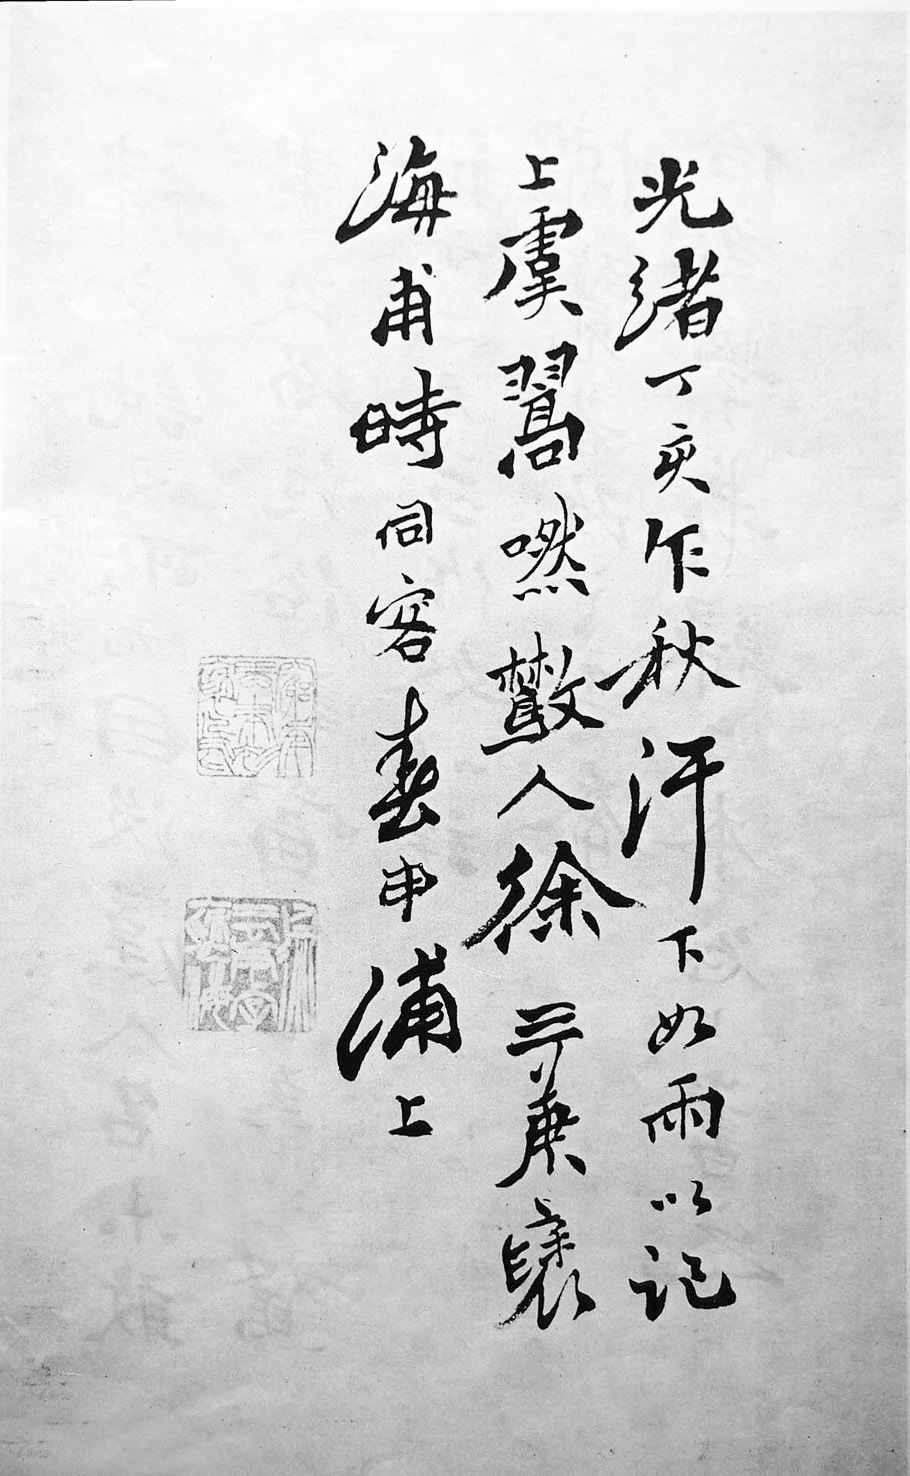 光緒丁亥乍秋汗下如雨以記
上虞翯嘫㪚人徐三庚褎
海甫時同客春申浦上